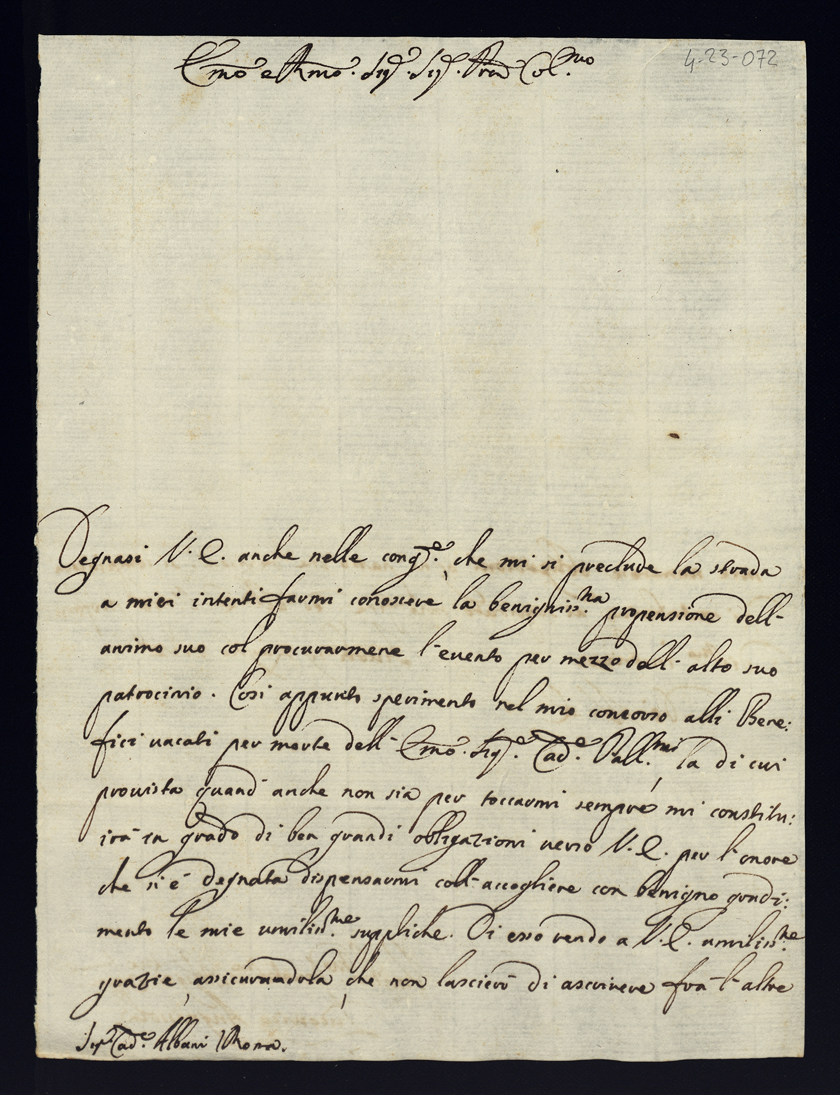 4-23-072
Emo e Rmo. Sigr. Sigr. Pron Col.mo
Degnasi V. E. anche nelle cong.e che mi si preclude la strada
a miei intenti farmi conoscere la benigniss.ma propensione dell'
animo suo col procurarmene l'evento per mezzo dell' alto suo
patrocinio. Così appunto sperimento nel mio concorso alli Bene:
fici vacati per morte dell' Emo. Sig.e Cad.e Pall.mi la di cui
provista quand' anche non sia per toccarmi sempre mi constitu:
irà in grado di ben grandi obligazioni verso V. E. per l'onore
che si è degnata dispensarmi coll' accogliere con benigno gradi:
mento le mie umilis.me suppliche. Di esso rendo a V. E. umilis.me
grazie, assicurandola, che non lascierò di ascrivere frà l'altre
Sigr Cad.e Albani Roma.